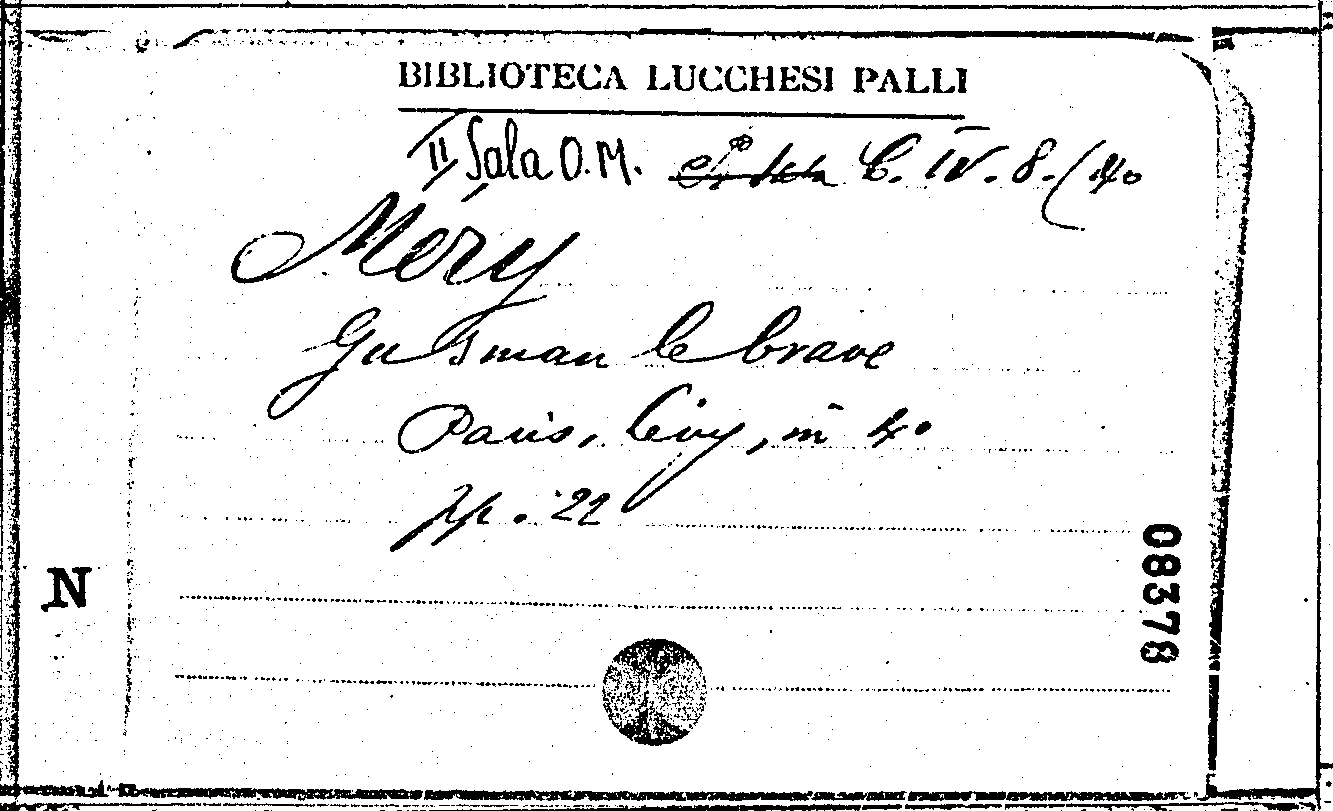 BIBLIOTECA LUCCHESI PALLI
II Sala O. M. C. IV. 8. (40
Méry
Gusman le brave
Paris, Lévy, in 4°
pp. 22
N
08378